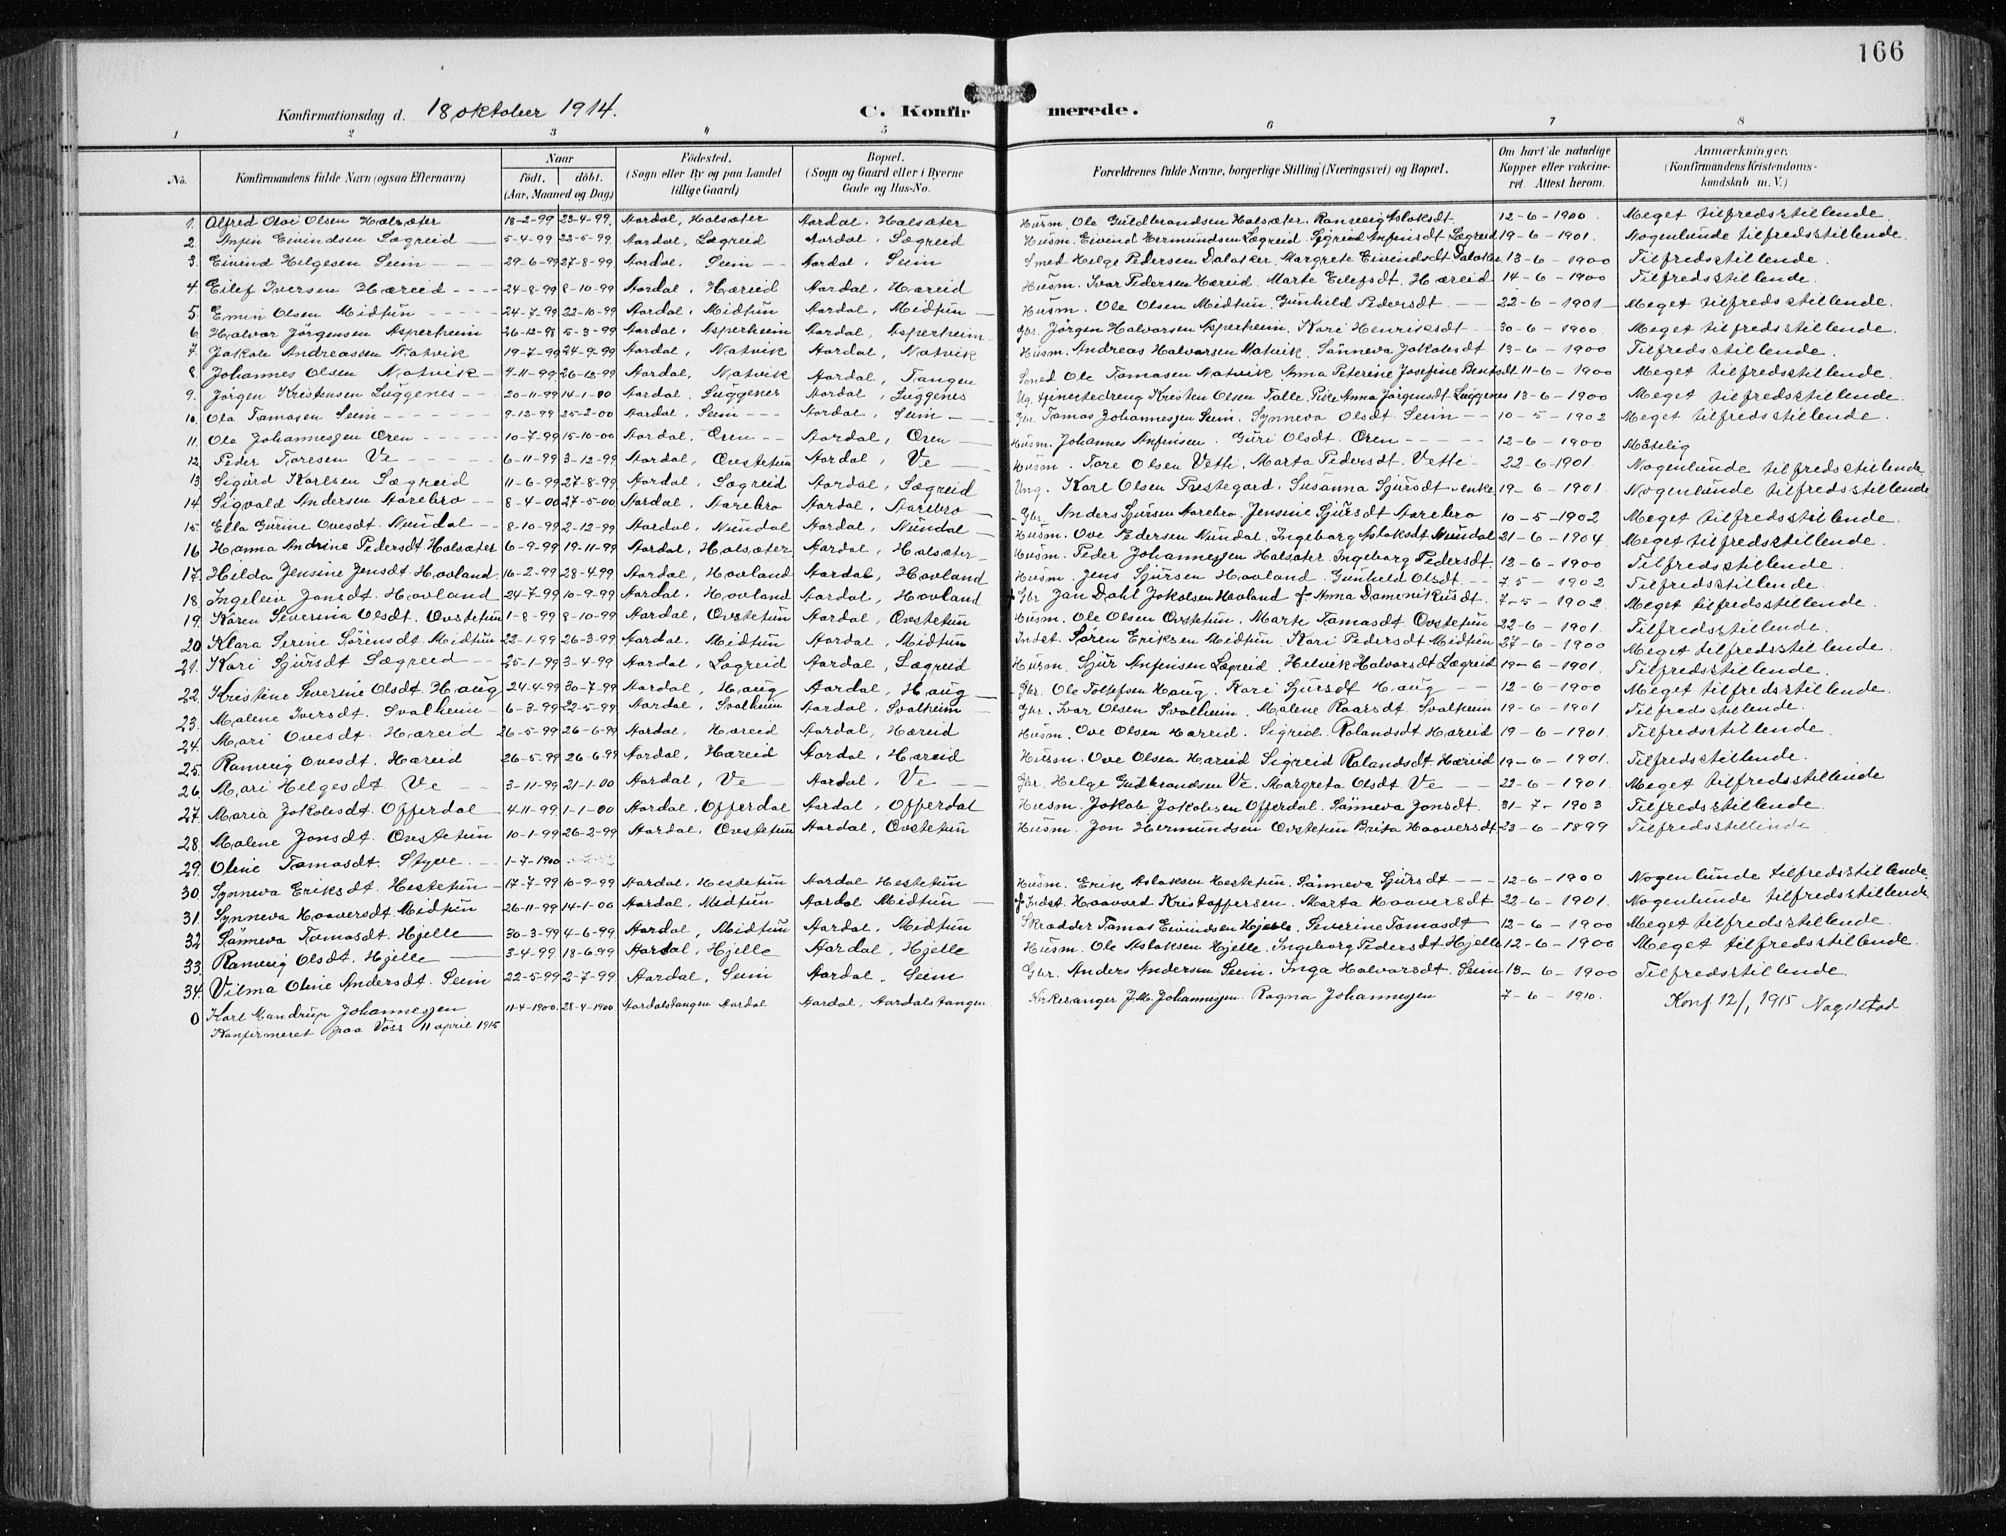 166
Konfirmationsdag d. 18 oktober 1914. C. Konfirmerede.
1 2 3 4 5 6 7 8
No. Konfirmandens fulde Navn (ogsaa Efternavn) Naar födt. döbt. (Aar, Maaned og Dag) Födested. (Sogn eller By og paa Landet tillige Gaard) Bopæl. (Sogn og Gaard eller i Byerne Gade og Hus-No. Forældrenes fulde Navne, borgerlige Stilling (Næringsvei) og Bopæl. Om havt de naturlige Kopper eller vakcineret. Attest herom. Anmærkninger, (Konfirmandens Kristendomskundskab m. V.)
1. Alfred Olai Olsen Halsæter 18-2-99 23-4-99 Aardal, Halsæter Aardal, Halsæter Husm. Ole Guldbrandsen Halsæter. Ranveig Aslaksdt. 12-6-1900. Meget tilfredsstillende
2. Anfin Eivindsen Lægreid 5-4-99 22-5-99 Aardal, Lægreid Aardal, Lægreid Husm. Eivind Hermundsen Lægreid. Sigrid Anfinsdt Lægreid 19-6-1901. Nogenlunde tilfredsstillende.
3. Eivind Helgesen Seim 29-6-99 27-8-99 Aardal, Seim Aardal, Seim Smed Helge Pedersen Dalaker. Margrete Eivindsdt Dalaker 13-6-1900 Tilfredsstillende.
4 Eilef Iversen Hæreid 24-8-99 8-10-99 Aardal, Hæreid Aardal, Hæreid Husm. Ivar Pedersen Hæreid. Marte Eilefsdt. Hæreid 14-6-1900 Tilfredsstillende.
5. Emin Olsen Midtun 24-7-99 22-10-99 Aardal, Midtun Aardal, Midtun Husm. Ole Olsen Midtun. Gunhild Pedersdt 22-6-1901 Meget tilfredsstillende.
6. Halvor Jörgensen Asperheim 26-12-98 5-3-99 Aardal, Asperheim Aardal, Asperheim Gbr. Jörgen Halvorsen Asperheim. Kari Henriksdt 30-6-1900. Meget tilfredsstillende.
7. Jakob Andreassen Natvik 19-7-99 24-9-99 Aardal, Natvik Aardal, Natvik Husm. Andreas Halvorsen Natvik. Sönneva Jakobsdt 13-6-1900 Tilfredsstillende.
8. Johannes Olsen Natvik 4-11-99 26-12-99 Aardal, Natvik Aardal, Tangen Smed Ole Tomasen Natvik Anna Peterine Josefine Bentsdt 11-6-1900 Meget tilfredsstillende.
9. Jörgen Kristensen Luggenes 20-11-99 14-1-00 Aardal, Luggenes Aardal, Luggenes Kristen Olsen Falle. Pike Anna Jörgensdt Luggenes 13-6-1900 Meget tilfredsstillende.
10. Ola Tomasen Seim 9-12-99 25-2-00 Aardal, Seim Aardal, Seim Gbr. Tomas Johannessen Seim. Synneva Olsdt. Seim 10-5-1902 Meget tilfredsstillende
11. Ole Johannessen Øren 10-7-99 15-10-00 Aardal, Øren Aardal, Øren Husm. Johannes Anfinsen. Guri Olsdt. Øren 12-6-1900 Måtelig
12. Peder Toresen Ve 6-11-99 3-12-99 Aardal, Ovstetun Aardal, Ve Husm. Tore Olsen Vetti. Marta Pedersdt. Vetti 22-6-1901. Nogenlunde tilfredsstillende.
13 Sigurd Karlsen Lægreid 11-6-99 27-8-99 Aardal, Lægreid Aardal, Lægreid Ung. Karl Olsen Prestegard. Susanna Sjursdt enke 19-6-1901. Nogenlunde tilfredsstillende
14 Sigvald Andersen Aarebro 8-4-00 27-5-00 Aardal, Aarebro Aardal, Aarebro Gbr. Anders Sjursen Aarebro. Jensine Sjursdt Aarebro 10-5-1902 Meget tilfredsstillende.
15. Ella Gurine Ovesdt Nundal 8-10-99 2-12-99 Aardal, Nundal Aardal, Nundal Husm. Ove Pedersen Nundal. Ingeborg Aslaksdt Nundal 21-6-1904 Meget tilfredsstillende.
16 Hanna Andrine Pedersdt Halsæter 6-9-99 19-11-99 Aardal, Halsæter Aardal, Halsæter Husm. Peder Johannessen Halsæter Ingeborg Pedersdt. 12-6-1900 Tilfredsstillende.
17. Hilda Jensine Jensdt Hovland 16-2-99 28-4-99 Aardal, Hovland Aardal, Hovland Husm. Jens Sjursen Hovland. Gunhild Olsdt 7-5-1902 Tilfredsstillende.
18. Ingeleiv Jansdt. Hovland 24-7-99 10-9-99 Aardal, Hovland Aardal, Hovland Gbr. Jan Dahl Jakobsen Hovland Anna Dominikusdt. 7-5-1902. Meget tilfredsstillende.
19. Karen Severina Olsdt. Ovstetun 1-8-99 8-10-99 Aardal, Ovstetun Aardal, Ovstetun Husm. Ole Olsen Ovstetun. Marte Tomasdt Ovstetun 22-6-1901 Tilfredsstillende.
20. Klara Serine Sörensdt Midtun 22-1-99 26-3-99 Aardal, Midtun Aardal, Midtun Indst. Sören Eriksen Midtun. Kari Pedersdt Midtun 27-6-1900 Meget tilfredsstillende.
21. Kari Sjursdt Lægreid 25-1-99 3-4-99 Aardal, Lægreid Aardal, Lægreid Husm. Sjur Anfinsen Lægreid. Helvik Halvorsdt Lægreid 19-6-1901. Tilfredsstillende.
22. Kristine Severine Olsdt. Haug 24-4-99 30-7-99 Aardal, Haug Aardal, Haug Gbr. Ole Tollefsen Haug. Kari Sjursdt Haug 12-6-1900 Meget tilfredsstillende.
23. Malene Iversdt. Svalheim 6-3-99 22-5-99 Aardal, Svalheim Aardal, Svalheim Gbr. Ivar Olsen Svalheim. Malene Roarsdt. Svalheim 19-6-1901 Tilfredsstillende.
24. Mari Ovesdt. Hæreid 26-5-99 26-6-99 Aardal, Hæreid Aardal, Hæreid Husm. Ove Olsen Hæreid. Sigrid Rolandsdt Hæreid 19-6-1901. Tilfredsstillende.
25. Ranveig Ovesdt. Hæreid 26-5-99 26-6-99 Aardal, Hæreid Aardal, Hæreid Husm. Ove Olsen Hæreid Sigreid Rolandsdt Hæreid 19-6-1901. Tilfredsstillende.
26. Mari Helgesdt Ve 3-11-99 21-1-00 Aardal, Ve Aardal, Ve Gbr. Helge Gudbrandsen Ve. Margreta Olsdt Ve 22-6-1901. Meget tilfredsstillende
27. Maria Jakobsdt Offerdal 4-11-99 1-1-00 Aardal, Offerdal Aardal, Offerdal Husm. Jakob Jakobsen Offerdal. Sönneva Jonsdt. 31-7-1903 Tilfredsstillende.
28. Malene Jonsdt. Ovstetun 10-1-99 26-2-99 Aardal, Ovstetun Aardal, Ovstetun Husm. Jon Hermundsen Ovstetun Brita Haaversdt 23-6-1899 Tilfredsstillende
29. Oline Tomasdt. Styve 1-7-1900
30. Synneva Eriksdt. Hestetun 17-7-99 10-9-99 Aardal, Hestetun Aardal Hestetun Husm. Erik Aslaksen Hestetun. Sönneva Sjursdt 12-6-1900 Nogenlunde tilfredsstillende.
31. Synneva Haaversdt Midtun 26-11-99 14-1-00 Aardal, Midtun Aardal Midtun Indst. Haavard Kristoffersen. Marta Haaversdt 22-6-1901. Nogenlunde tilfredsstillende
32 Sönneva Tomasdt. Hjelle 30-3-99 4-6-99 Aardal, Midtun Aardal, Midtun Skrædder Tomas Eivindsen Hjelle. Severine Tomasdt 12-6-1900 Meget tilfredsstillende
33. Ranveig Olsdt. Hjelle 3-4-99 18-6-99 Aardal, Hjelle Aardal, Hjelle Husm. Ole Aslaksen Hjelle. Ingeborg Pedersdt Hjelle 12-6-1900 Meget tilfredsstillende.
34. Vilma Oline Andersdt. Seim 22-5-99 2-7-99 Aardal, Seim Aardal. Seim Gbr. Anders Andersen Seim. Inga Halvorsdt. Seim 13-6-1900 Tilfredsstillende.
0 Karl Gandrup Johannessen 11-4-1900 28-4-1900 Aardalstangen Aardal Aardal, Aardalstangen Kirkesanger Johannessen. Ragna Johannessen 7-6-1910. Konf 12/1 1915 Nagelstad
Konfirmeret paa Voss 11 april 1915